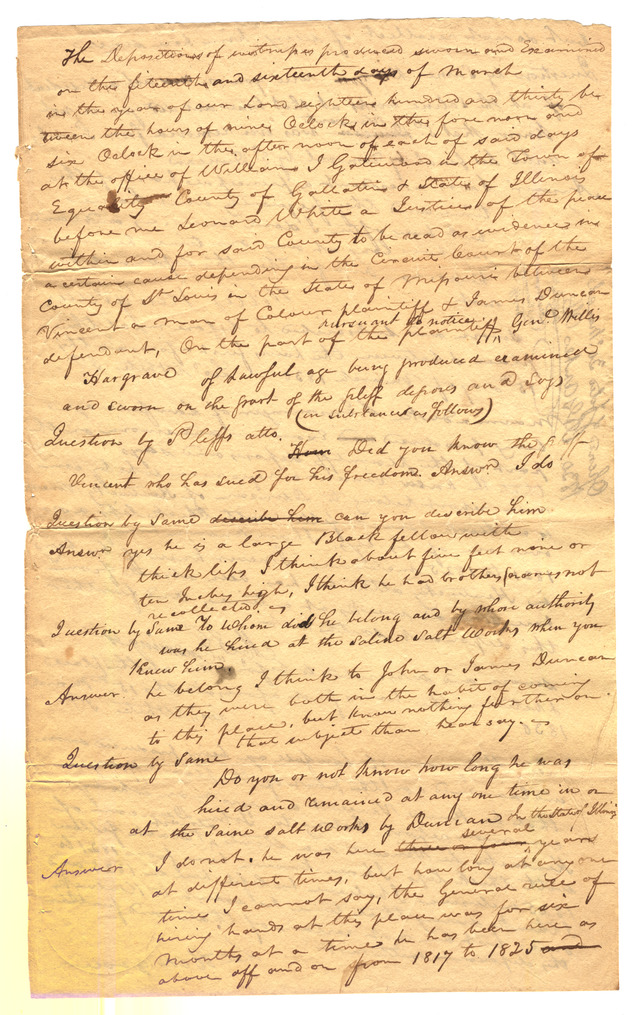 The Depositions of witnesses produced sworn and Examined
on the fifteenth and sixteenth days of March
in the year of our Lord eighteen hundred and thirty be
tween the hours of nine Oclock in the fore noon and
six Oclock in the after noon of each of said days
at the office of William J Gatewood in the Town of
Equality County of Gallatin & State of Illinois
before me Leonard White a Justice of the peace
within and for said County to be read as evidence in
a certain cause depending in the Circuit Court of the
County of St Louis in the State of Missouri between
Vincent a man of Colour plaintiff & James Duncan
defendant, On the part of the plaintiff pursuant to notice Genl Willis
Hargrave of Lawful age being produced examined
and sworn on the part of the pltff deposes and Says
(in substance as follows)
Question by Pltffs atto. How Did you know the
Vincent who has sued for his freedom. Answr. I do
Question by Same describe him can you describe him
Answr yes he is a large Black fellow with
thick lips I think about five feet nine or
ten Inches high, I think he had brothers names not
recollected.
Question by Same To whom did he belong and by whose authority
was he hired at the Saline Salt Works when you
Knew him.
Answer he belong I think to John or James Duncan
as they were both in the habit of coming
to this place, but know nothing further on
that subject than hear say.
Question by Same
Do you or not know how long he was
hired and remained at any one time in or
at the Saine Salt Works by Duncan In the State of Illinois
Answer I do not. he was here three or four several years
at different times, but how long at any one
time I cannot say, the General rule of
hiring hands at this place was for six
Months at a time he has been here as
above off and on from 1817 to 1825 and